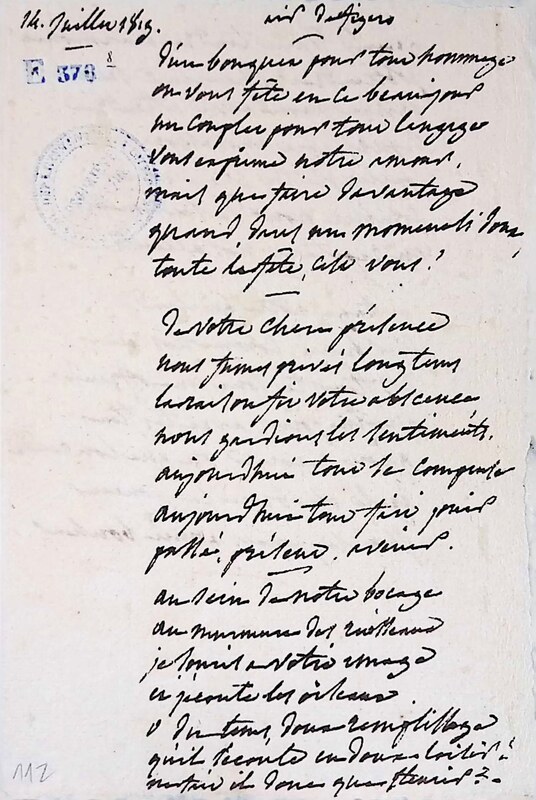 14. Juillet 1819.
air de figaro
8
A 376
D'un bouquet pour tout hommage
on vous fête en ce beau jour
un couplet pour tout langage
vous exprime notre amour,
mais que faire davantage
quand dans un moment si doux,
toute la fête, c'est vous?
De votre chere présence
nous fumes privés longtems
la raison fit votre abscence
nous gardions les sentiments.
aujourd'hui tout se compense
aujourd'hui tout fait jouir
passé, présent, avenir.
au sein de notre bocage
au murmure des ruisseaux
je souris a votre image
et j'écoute les oiseaux
o du tems doux remplissage
qu'il s'écoule en doux loisirs
n'est il donc que
112